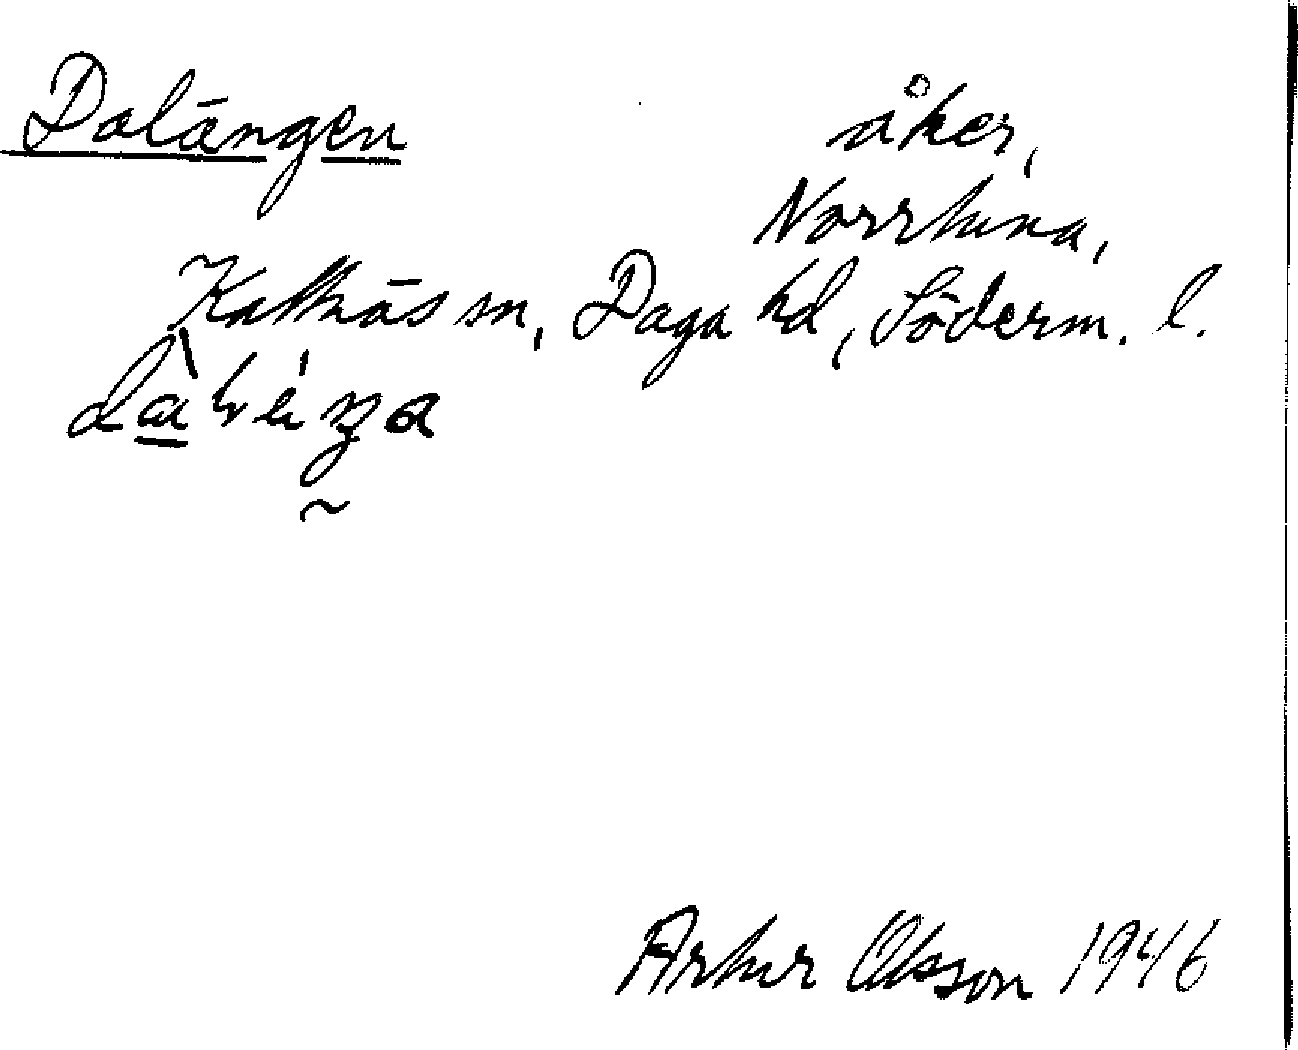 Dalängen
åker,
Norrhuna,
Kattnäs sn, Daga hd, Söderm. l.
Artur Olsson 1946